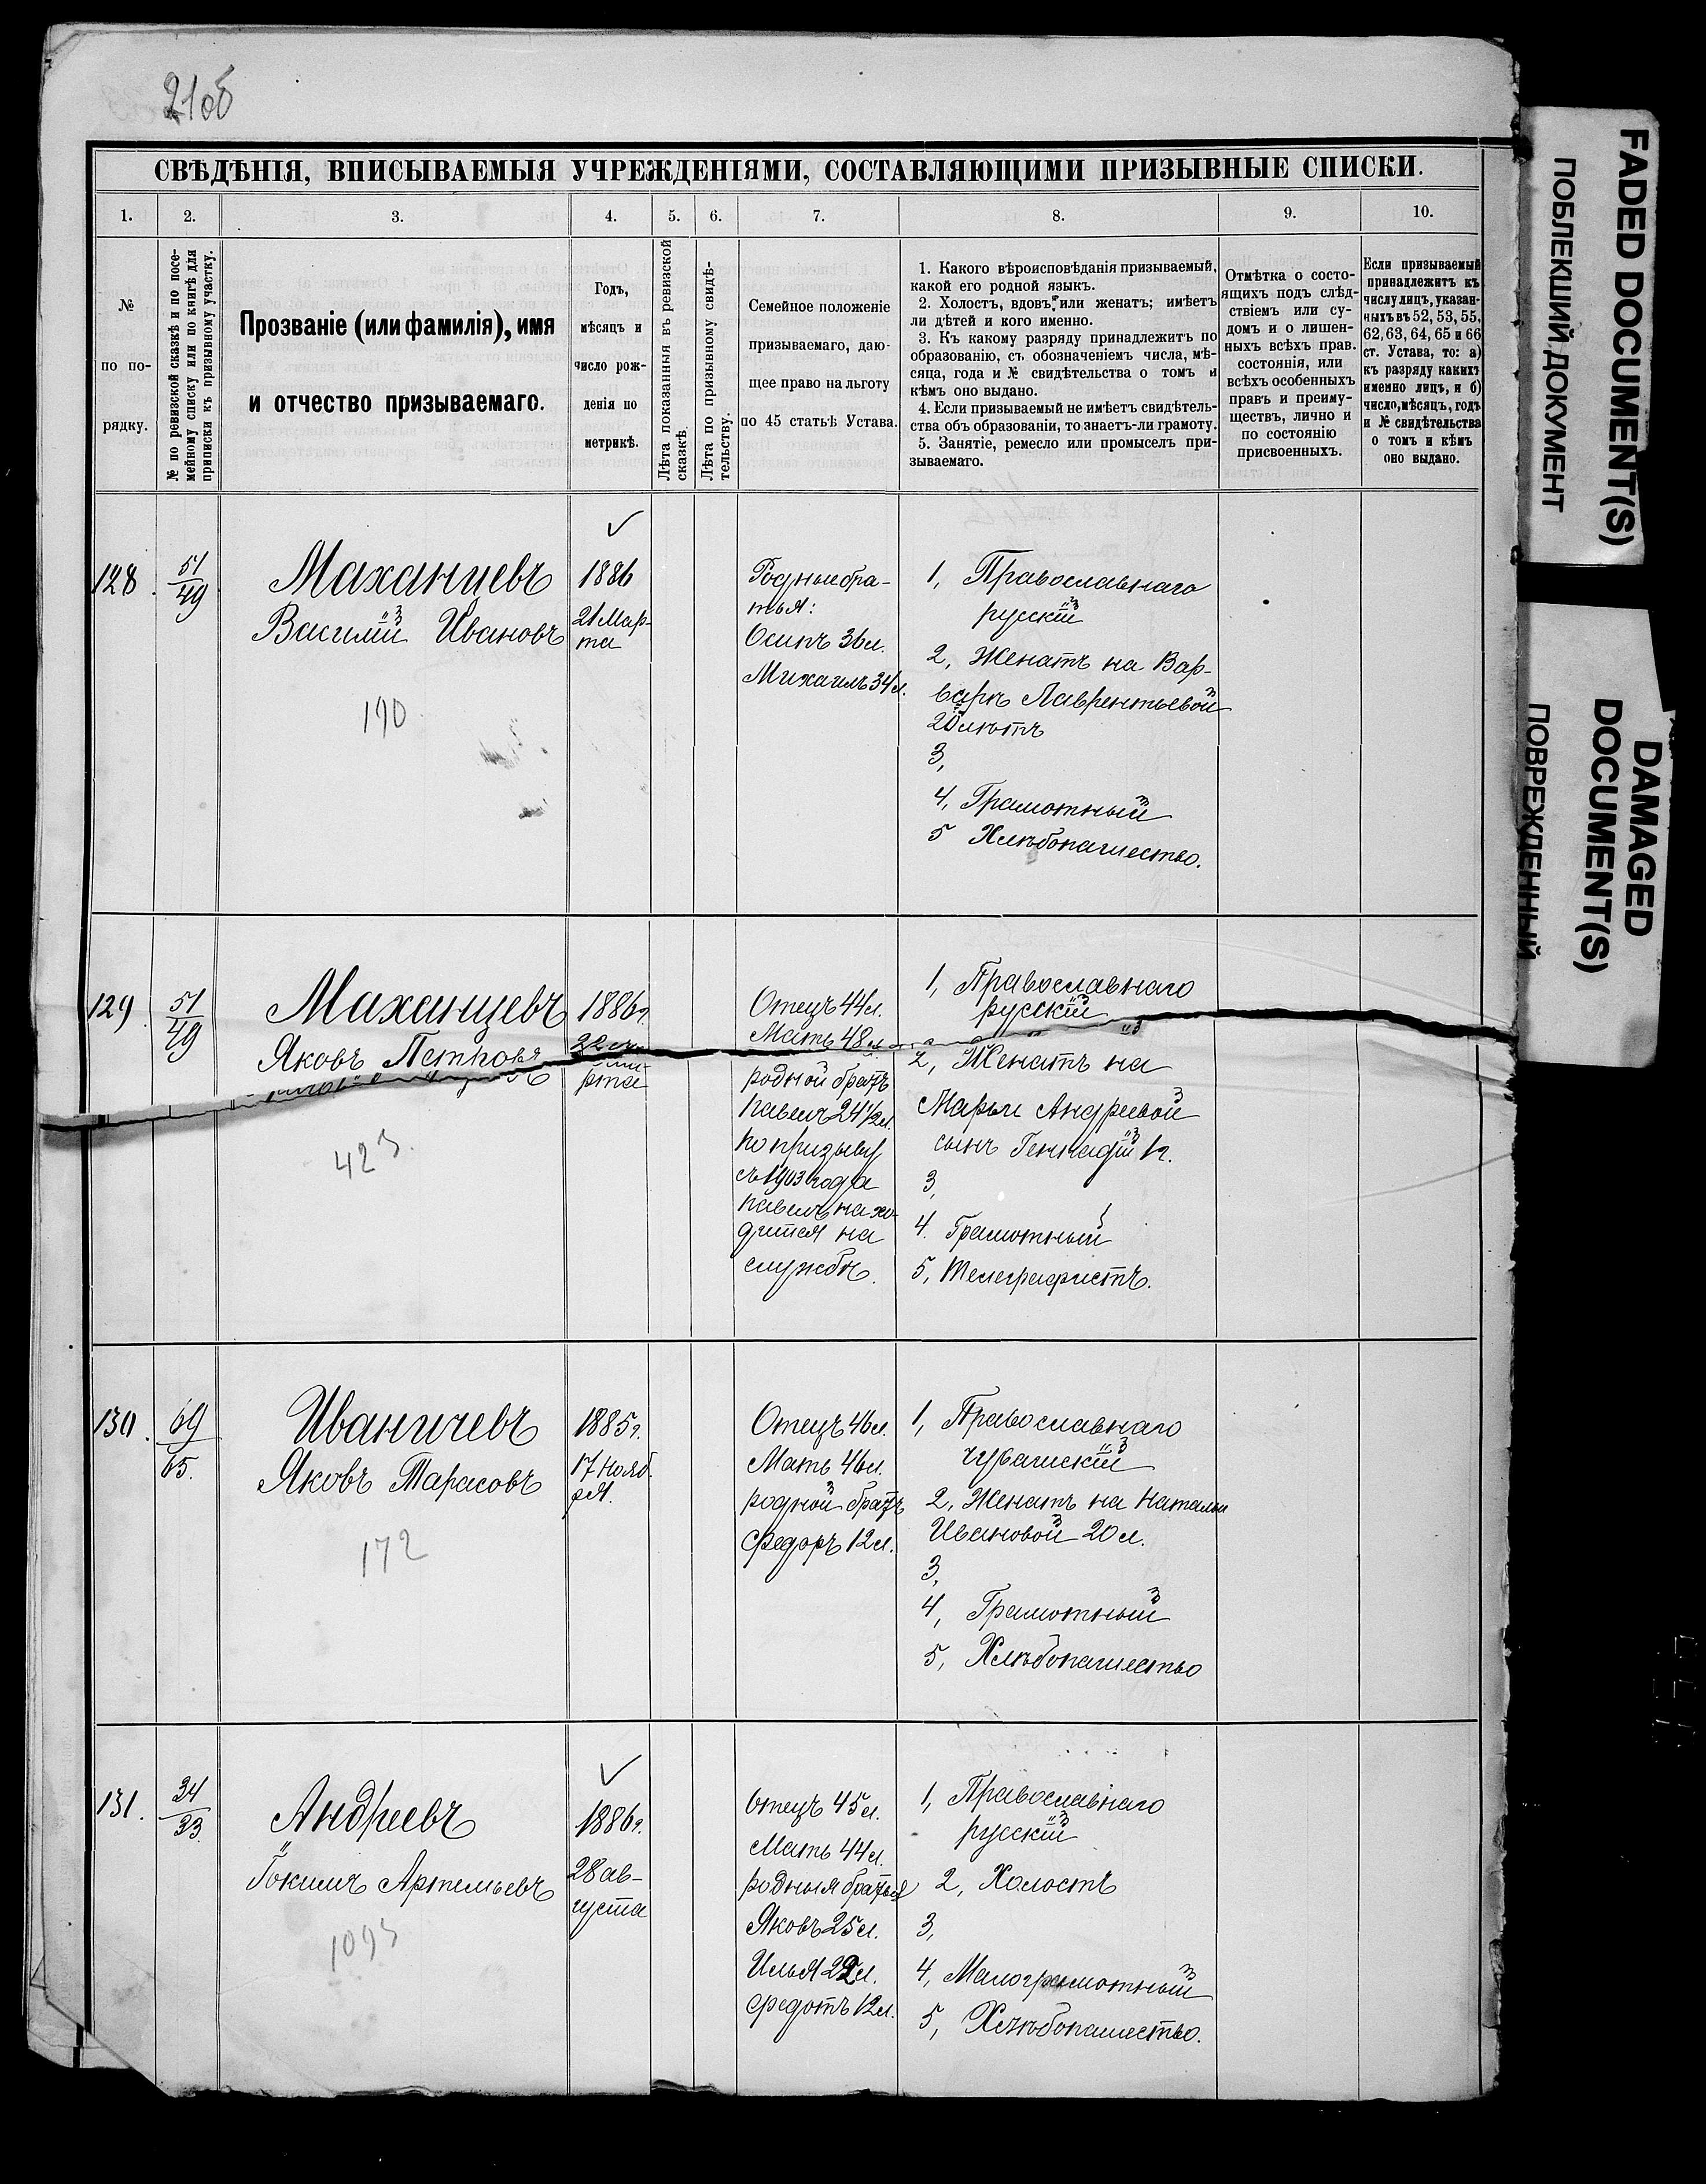 21об
СВѢДѢНІЯ, ВПИСЫВАЕМЫЯ УЧРЕЖДЕНІЯМИ, СОСТАВЛЯЮЩИМИ ПРИЗЫВНЫЕ СПИСКИ.
1. 2. 3. 4. 5. 6. 7. 8. 9. 10.
№
по по-
рядку.
№ по ревизской сказкѣ и по посе-
мейному списку или по книгѣ для
приписки къ призывному участку.
Прозваніе (или фамилія), имя
и отчество призываемаго.
Годъ,
мѣсяцъ и
число рож-
денія по
метрикѣ.
Лѣта показанныя въ ревизской
сказкѣ.
Лѣта по призывному свидѣ-
тельству.
Семейное положеніе
призываемаго, даю-
щее право на льготу
по 45 статьѣ Устава.
1. Какого вѣроисповѣданія призываемый,
какой его родной языкъ.
2. Холостъ, вдовъ, или женатъ; имѣетъ
ли дѣтей и кого именно.
3. Къ какому разряду принадлежитъ по
образованію, съ обозначеніемъ числа, мѣ-
сяца, года и № свидѣтельства о томъ и
кѣмъ оно выдано.
4. Если призываемый не имѣетъ свидѣтель-
ства объ образованіи, то знаетъ-ли грамоту.
5. Занятіе, ремесло или промыселъ при-
зываемаго.
Отмѣтка о состо-
ящихъ подъ слѣд-
ствіемъ или су-
домъ и о лишен-
ныхъ всѣхъ прав.
состоянія, или
всѣхъ особенныхъ
правъ и преиму-
ществъ, лично и
по состоянію
присвоенныхъ.
Если призываемый
принадлежитъ къ
числу лицъ, указан-
ныхъ въ 52, 53, 55,
62, 63, 64, 65 и 66
ст. Устава, то: а)
къ разряду какихъ
именно лицъ, и б)
число, мѣсяцъ, годъ
и № свидѣтельства
о томъ и кѣмъ
оно выдано.
128.
51
49
Маханцевъ
Василій Ивановъ
190
1886
21 Мар-
та
Родные бра-
тья:
Осипъ 36 л.
Михаилъ 34 л.
1, Православнаго
русскій
2, Женатъ на Вар-
варѣ Лаврентьевой
20 лѣтъ
3,
4, Грамотный
5 Хлѣбопашество.
129.
51
49
Маханцевъ
Яковъ Петровъ
423.
1886 г.
22
рта
Отецъ 44 л.
Мать 48 л.
родной братъ
Павелъ 24 1/2 л.
по призыву
съ 1903 года
Павелъ нахо-
дится на
службѣ.
1, Православнаго
русскій
2, Женатъ на
Марьи Андреевой
сынъ Геннадій 1 г.
3,
4. Грамотный
5, Телеграфистъ.
130.
69
65.
Иваничевъ
Яковъ Тарасовъ
172
1885 г.
17 Нояб.
ря.
Отецъ 46 л.
Мать 46 л.
родной братъ
Федоръ 12 л.
1, Православнаго
чувашскій
2, Женатъ на Натальи
Ивановой 20 л.
3,
4, Грамотный
5, Хлѣбопашество
131.
34
33.
Андреевъ
Іокимъ Артемьевъ
1093
1886 г.
28 ав-
густа
Отецъ 45 л.
Мать 44 л.
родныя братья
Яковъ 25 л.
Илья 22 л.
Федотъ 12 л.
1, Православнаго
русскій
2, Холостъ
3,
4, Малограмотный
5, Хлѣбопашество.
FADED DOCUMENT(S)
ПОБЛЕКШИЙ ДОКУМЕНТ
DAMAGED
DOCUMENT(S)
ПОВРЕЖДЕННЫЙ